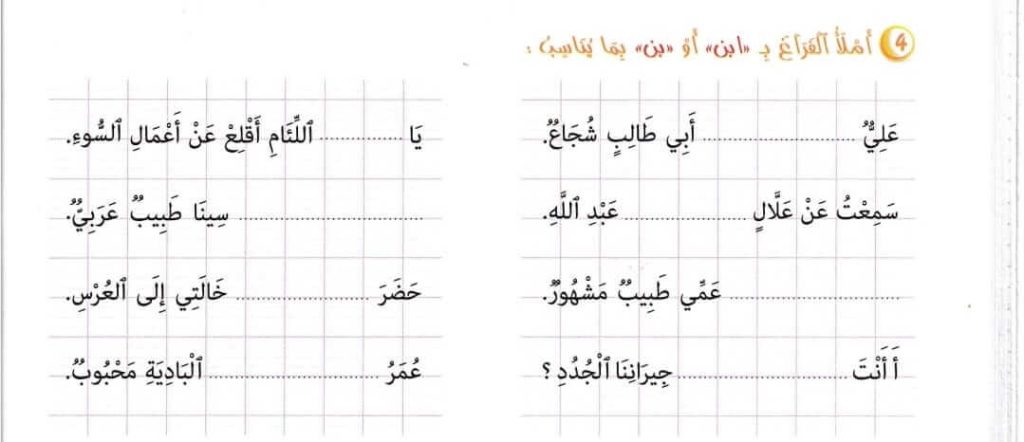 4 أَمْلَأُ ٱلْفَرَاغَ بِـ «ابن» أَوْ «بن» بِمَا يُنَاسِبُ :
عَلِيٌّ .................... أَبِي طَالِبٍ شُجَاعٌ.
سَمِعْتُ عَنْ عَلَّالٍ .................... عَبْدِ ٱللَّهِ.
.................... عَمِّي طَبِيبٌ مَشْهُورٌ.
أَ أَنْتَ .................... جِيرَانِنَا ٱلْجُدُدِ ؟
يَا .................... ٱللِّئَامِ أَقْلِعْ عَنْ أَعْمَالِ ٱلسُّوءِ.
.................... سِينَا طَبِيبٌ عَرَبِيٌّ.
حَضَرَ .................... خَالَتِي إِلَى ٱلْعُرْسِ.
عُمَرُ .................... ٱلْبَادِيَةِ مَحْبُوبٌ.